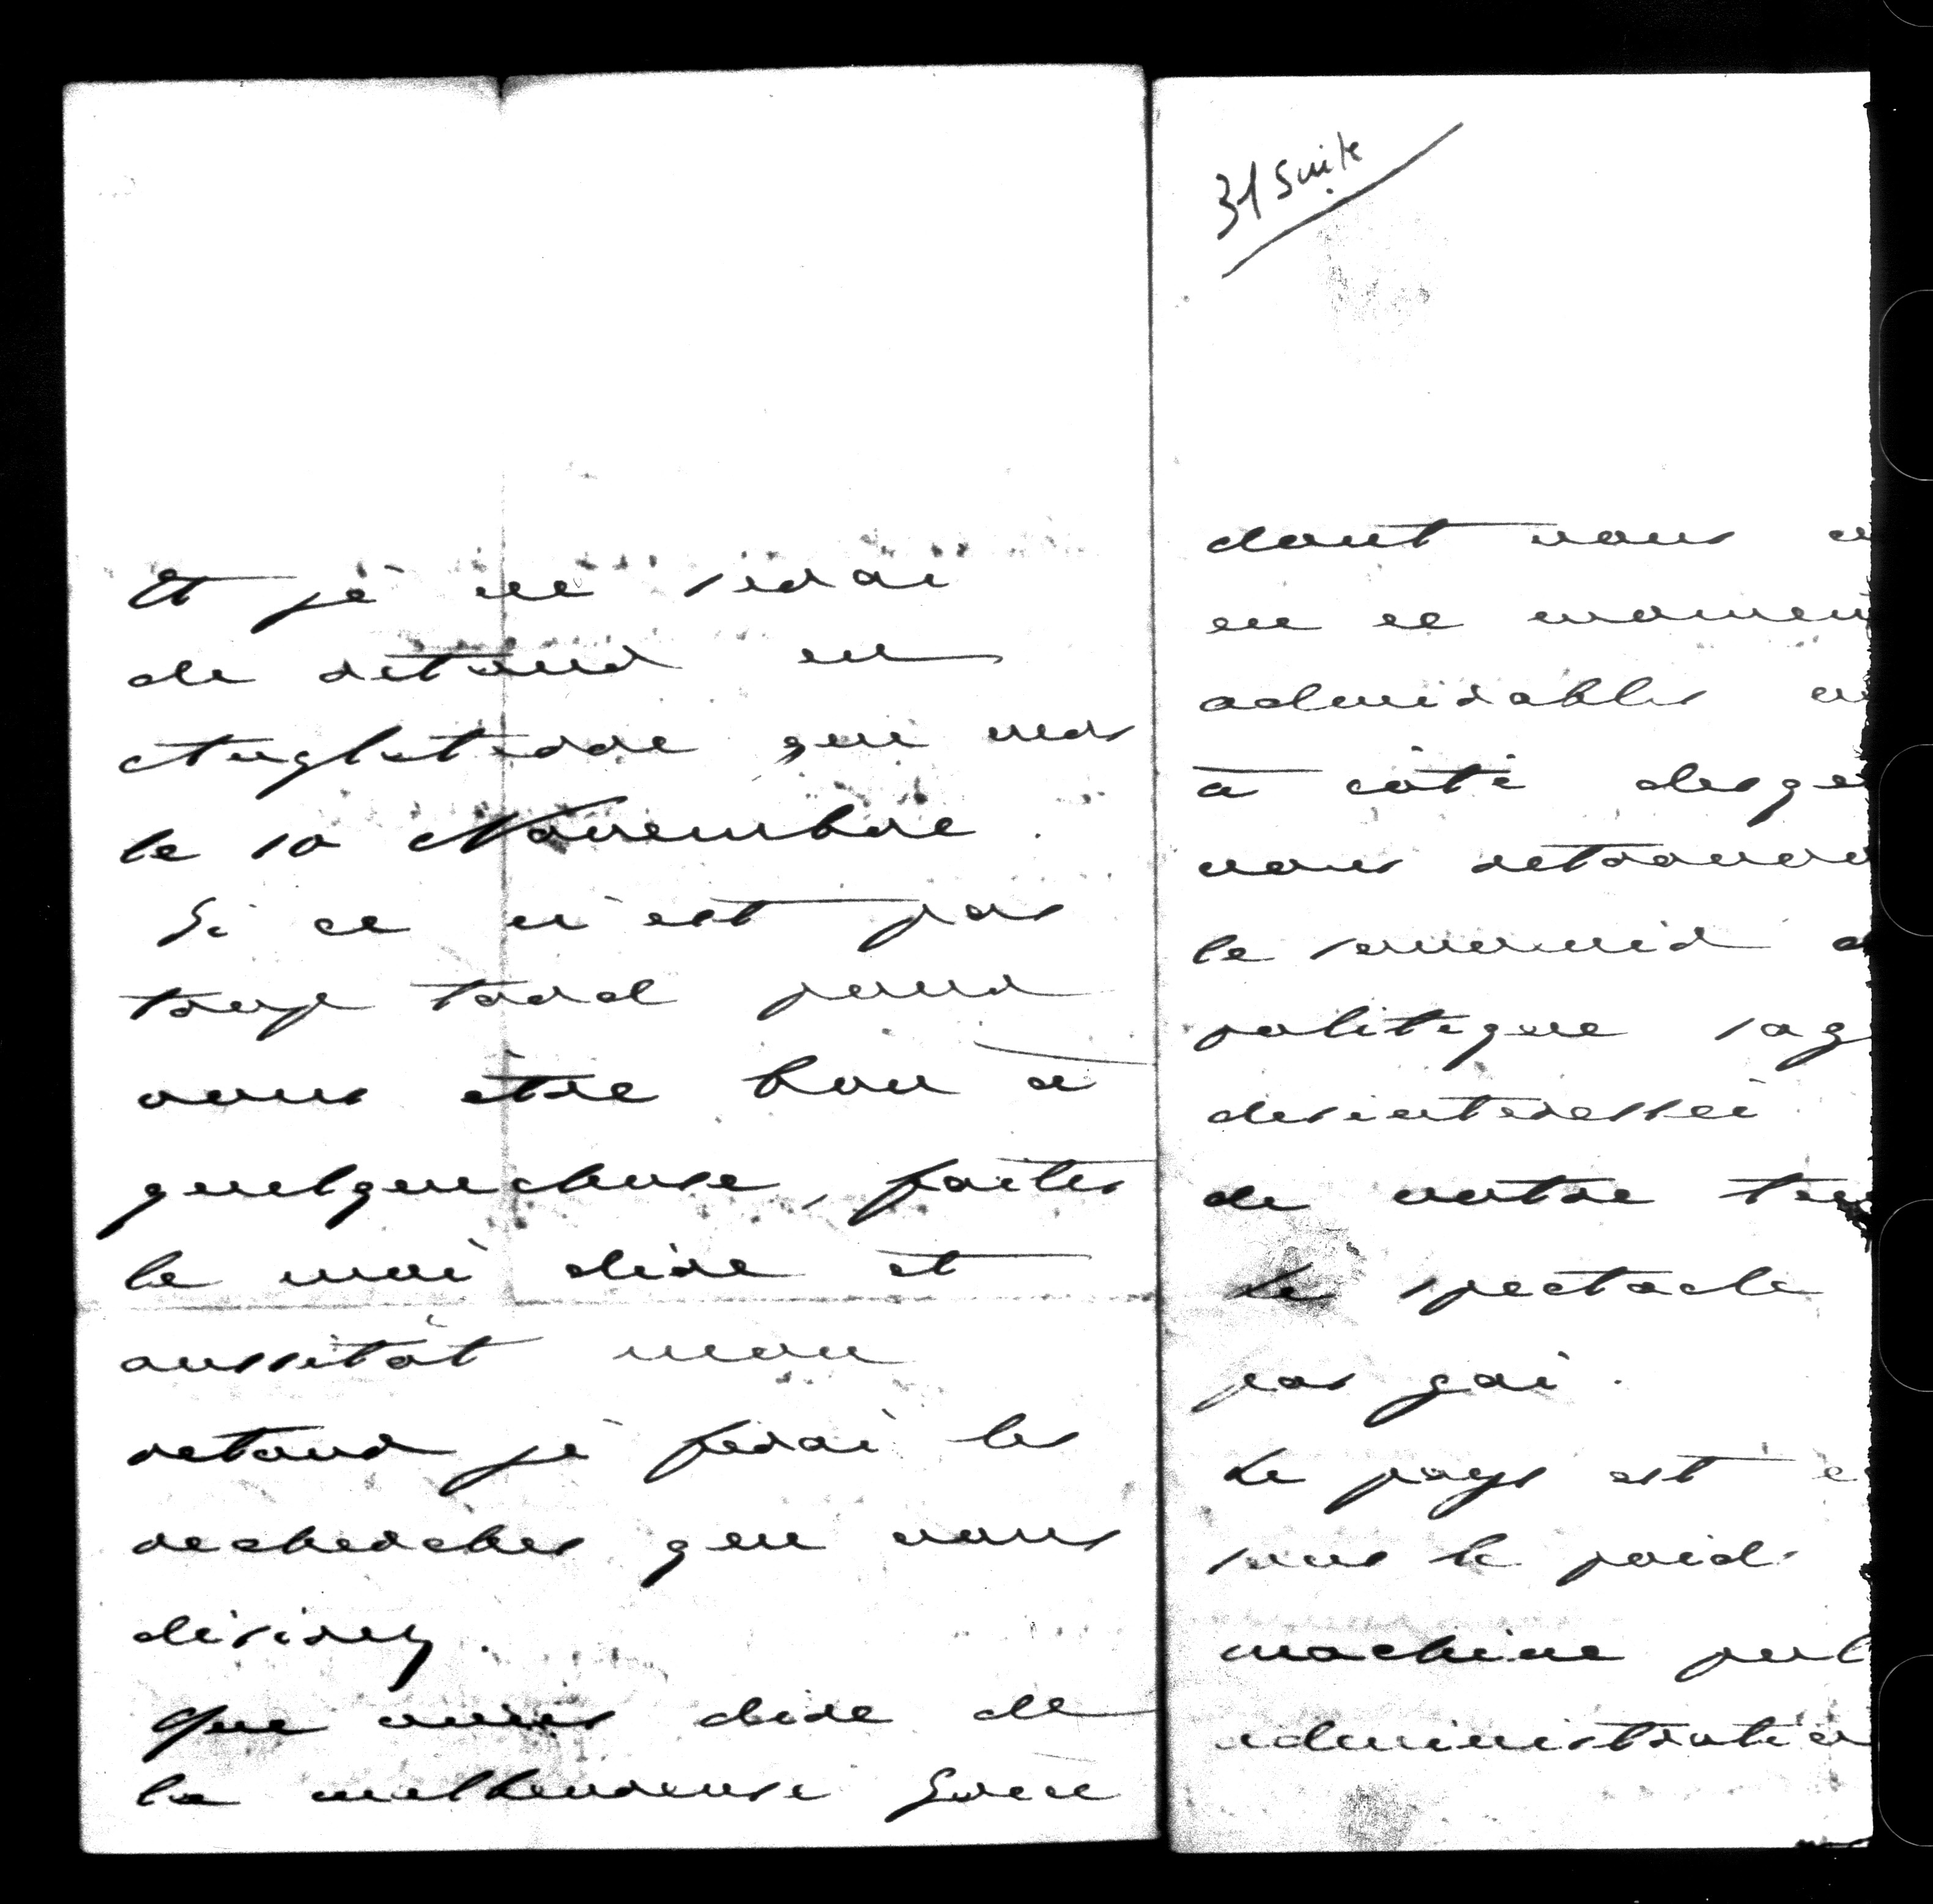 Et je ne serai
de retour en
Angleterre que vers
le 10 Novembre.
Si ce n'est pas
trop tard pour
vous être bon à
quelquechose, faites
le moi dire et
aussitôt mon
retour je ferai les
recherches que vous
désirez.
Que vous dire de
la malheureuse Grèce
31 suite
dont vous
en ce momen
admirables
à côté desque
vous retrouve
le souvenir
politique sag
desinteressée
de votre
Le spectacle
pas gai.
Le pays est
sous le poids
machine pub
administrative